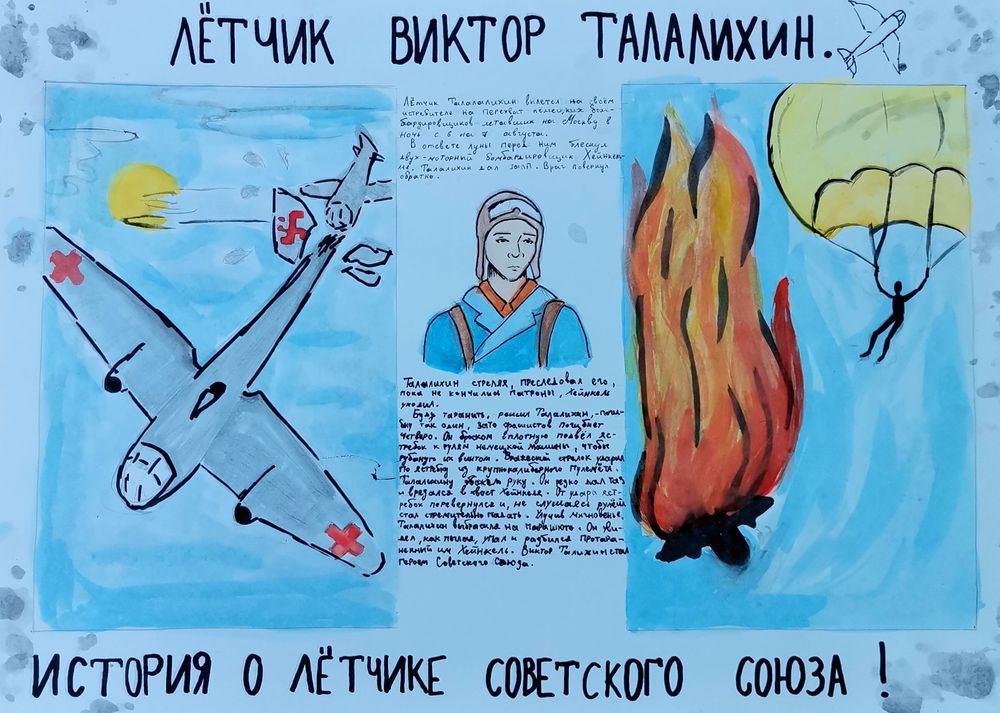 ЛЁТЧИК ВИКТОР ТАЛАЛИХИН.
Лётчик Талалалихин вилетел на своём
истребителе на перехват немецких бом-
бардировщиков летавших на Москву в
ночь с 6 на 7 августа.
В отсвете луны перед ним блеснул
двух-моторный бомбардировщик Хейнке-
Талалихин дал залп. Враг повернул
обратно.
Талалихин стреляя, преследовал его,
пока не кончились патроны, Хейнкель
уходил.
Буду таранить, решил Талалихин,-поги-
бну так один, зато фашистов погибнет
четверо. Он броском вплотную подвёл яс-
требок к рулям немецкой машины, чтобы
рубануть их винтом. Вражеский стрелок ударил
по ястребку из крупнокалиберного пулемёта.
Талалихину обожгло руку. Он резко дал газ
и врезался в хвост Хейнкеля. От удара яст-
ребок перевернулся и, не слушаясь рулей
стал стремительно падать. Улучив мгновение,
Талалихин выбросился на парашюте. Он уви-
дел, как пылая, упал и разбился протара-
ненный им Хейнкель. Виктор Талихин стал
героем Советского Союза.
ИСТОРИЯ О ЛЁТЧИКЕ СОВЕТСКОГО СОЮЗА !